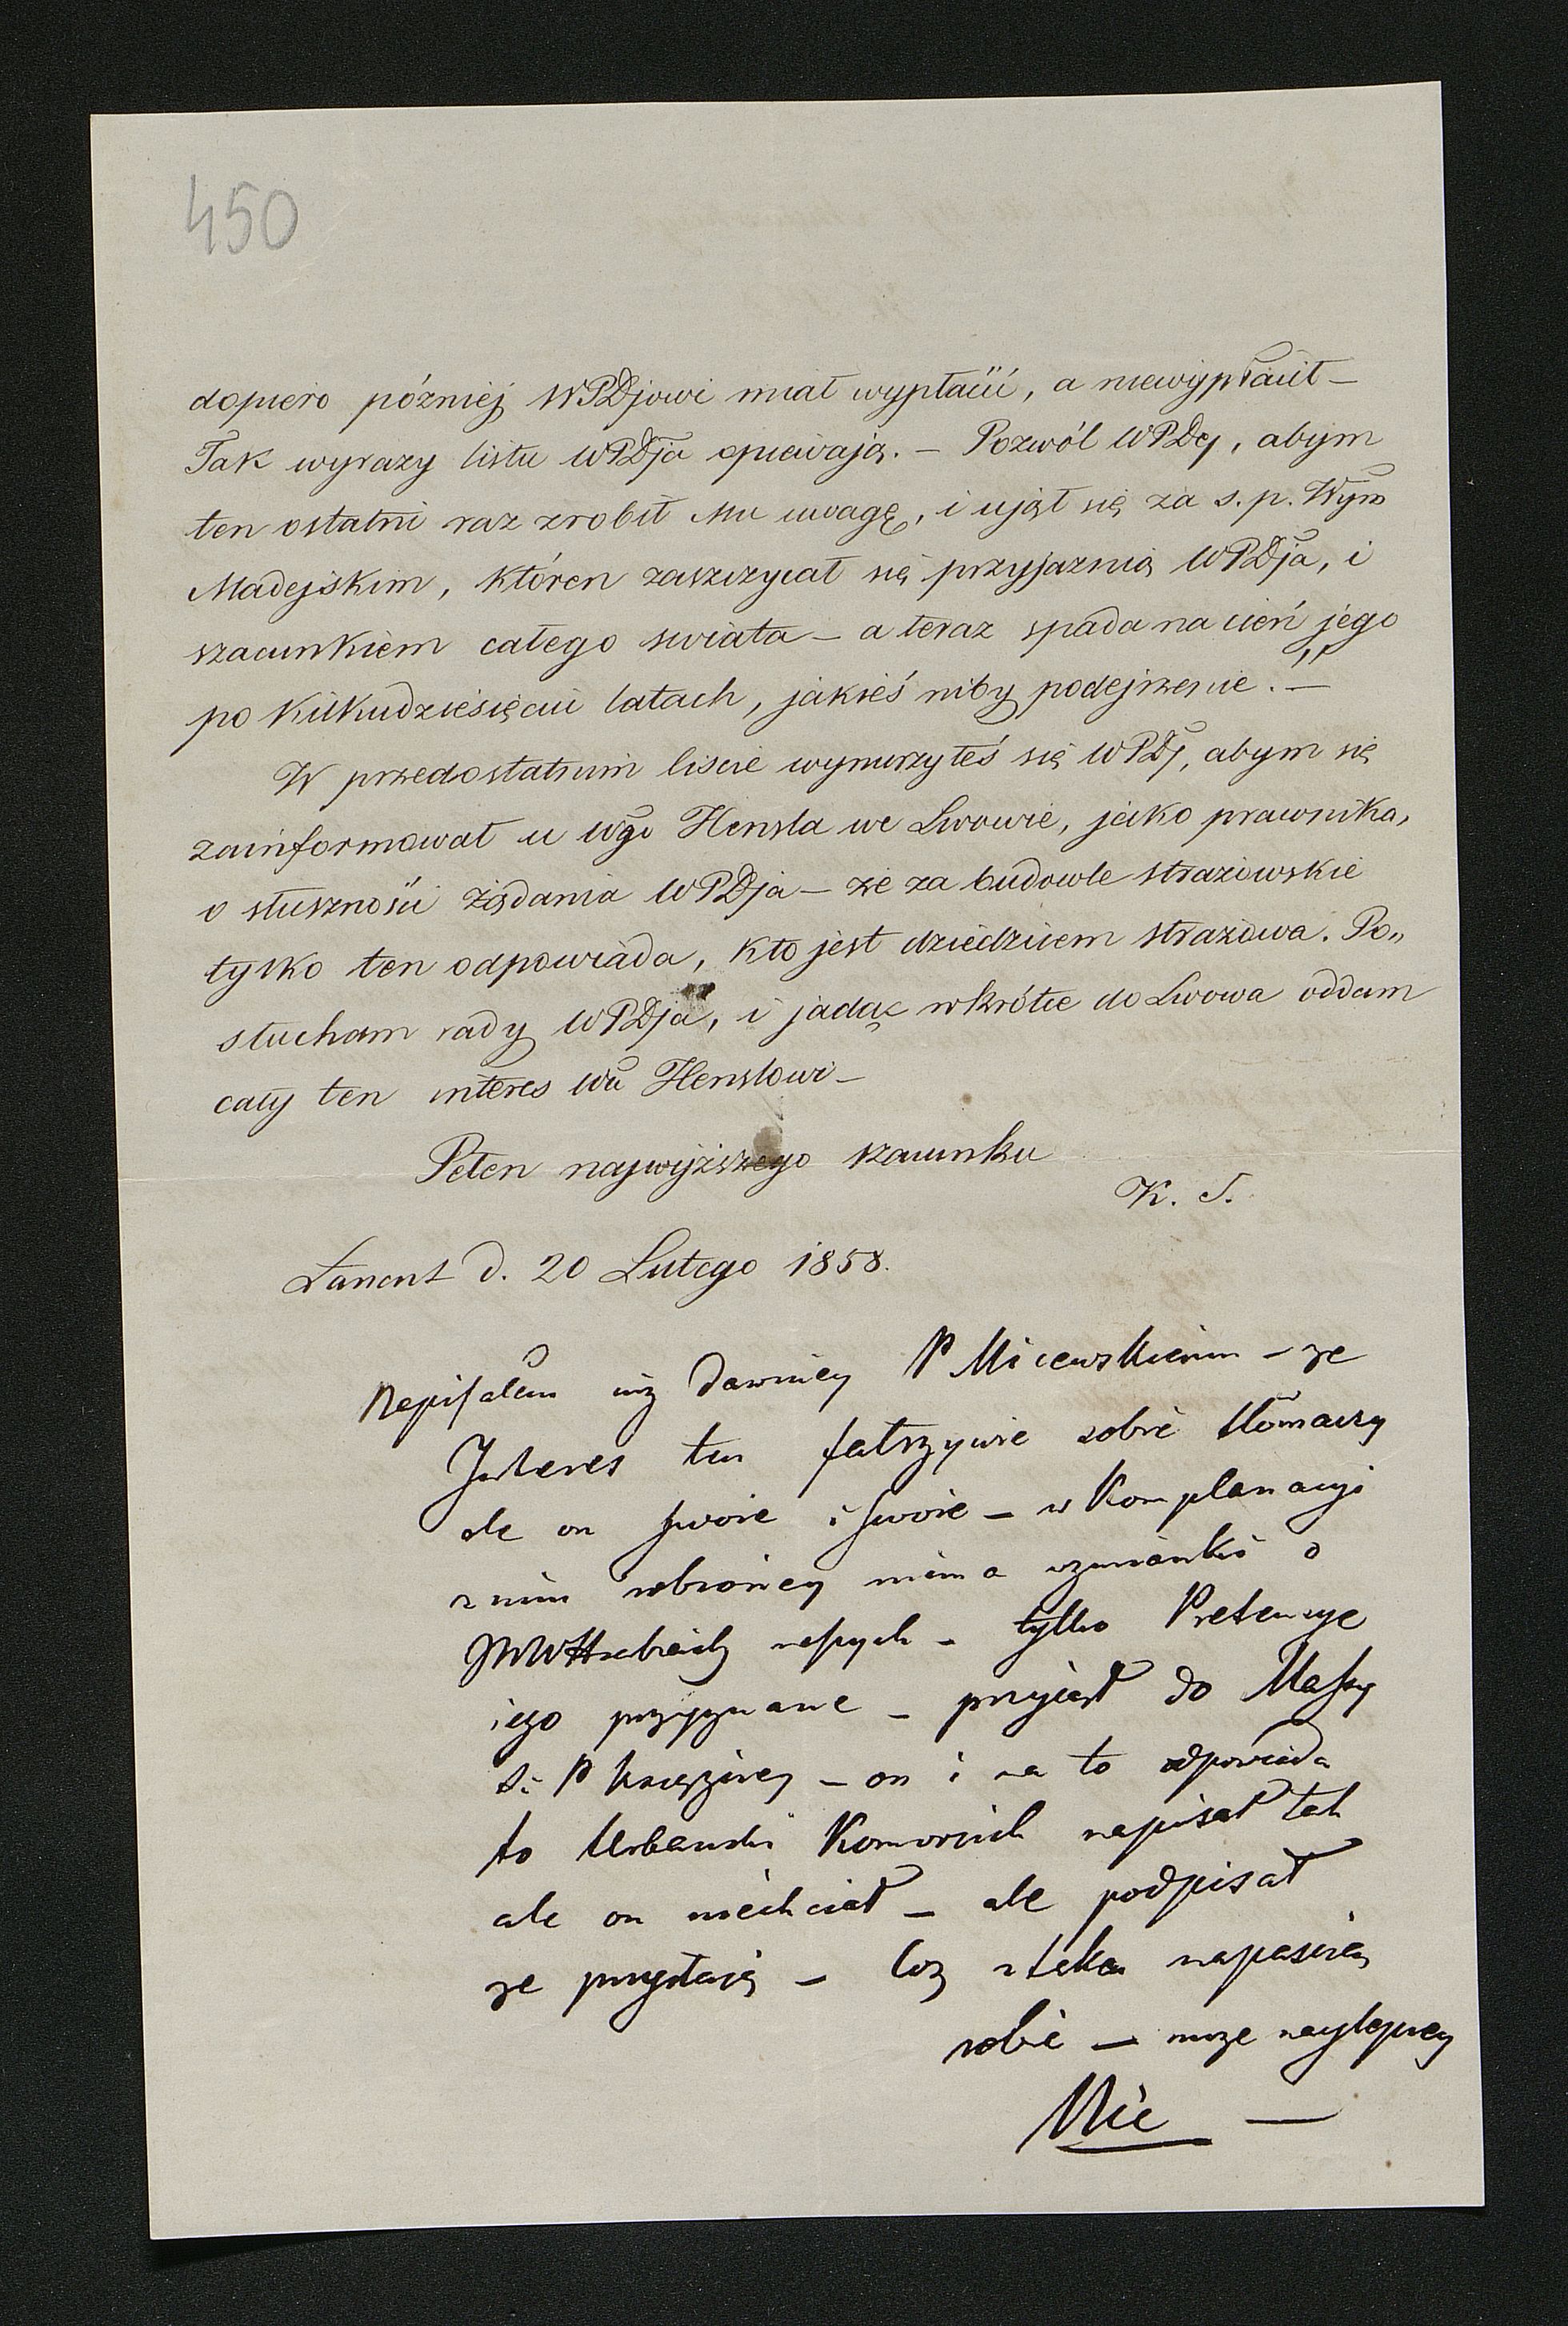 450
dopiero później WPDjowi miał wypłacić, a niewypłacił –
Tak wyrazy listu WPDja opiewają. – Pozwól WPDej, abym
ten ostatni raz zrobił Mu uwagę, i ujął się za s. p. Wym
Madejskim, któren zaszczycał się przyjaznią WPDja, i
szacunkiem całego swiata – a teraz spada na cień jego
po kilkudziesięciu latach, jakieś niby podejrzenie. –
W przedostatnim liscie wynurzyłeś się WPDj, abym się
zainformował u Wgo Hensla we Lwowie, jako prawnika,
o słuszności żądania WPDja – że za budowle strażowskie
tylko ten odpowiada, kto jest dziedzicem Strażowa. Po„
słucham rady WPDja, i jadąc wkrótce do Lwowa oddam
cały ten interes Wu Henslowi –
Pełen najwyższego szacunku
K. S.
Łancut d. 20 Lutego 1858.
Napisałem iuż dawniey P Micewskiemu – ze
Interes ten fałszywie sobie tłómaczy
ale on swoie i swoie – w Komplanacyi
z nim zrobioney nima wzmianki o
tylko Pretensye
iego przyznane – przyioł do Massy
S. P Xsięzney – on i na to odpowiada
to Urbanski Komornik napisał tak
ale on niechciał – ale podpisał
ze przystaią – Coz z taką napascią
robić – moze naylepiey
Nic –